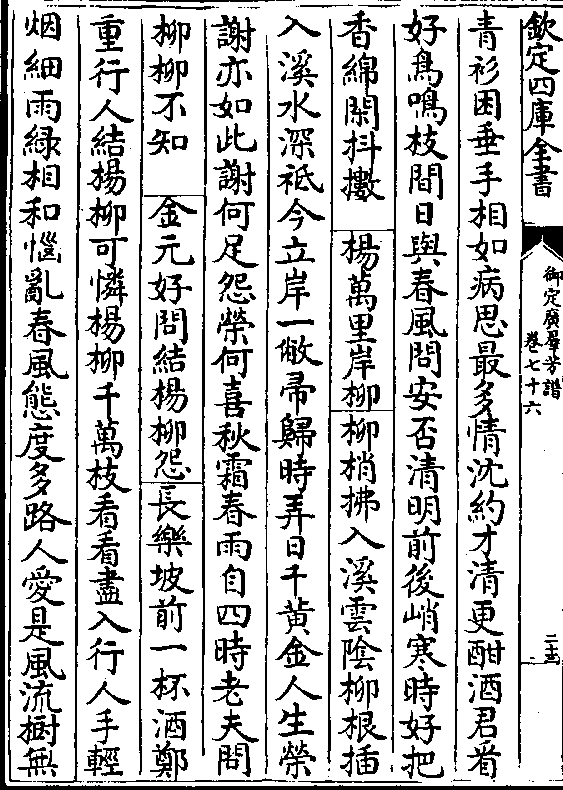 欽定四庫全書
御定廣羣芳譜
卷七十六
青衫困垂手相如病思最多情沈約才清更酣酒君㸔
好鳥鳴枝間日與春風問安否清明前後峭寒時好把
香綿閑抖擻 楊萬里岸柳 柳梢拂入溪雲陰柳根插
入溪水深袛今立岸一儆帚歸時弄日千黄金人生榮
謝亦如此謝何足怨榮何喜秋霜春雨自四時老夫問
柳柳不知 金元好問結楊柳怨 長樂坡前一杯酒鄭
重行人結楊柳可憐楊柳千萬枝看看盡入行人手輕
烟細雨緑相和惱亂春風態度多路人愛是風流樹無